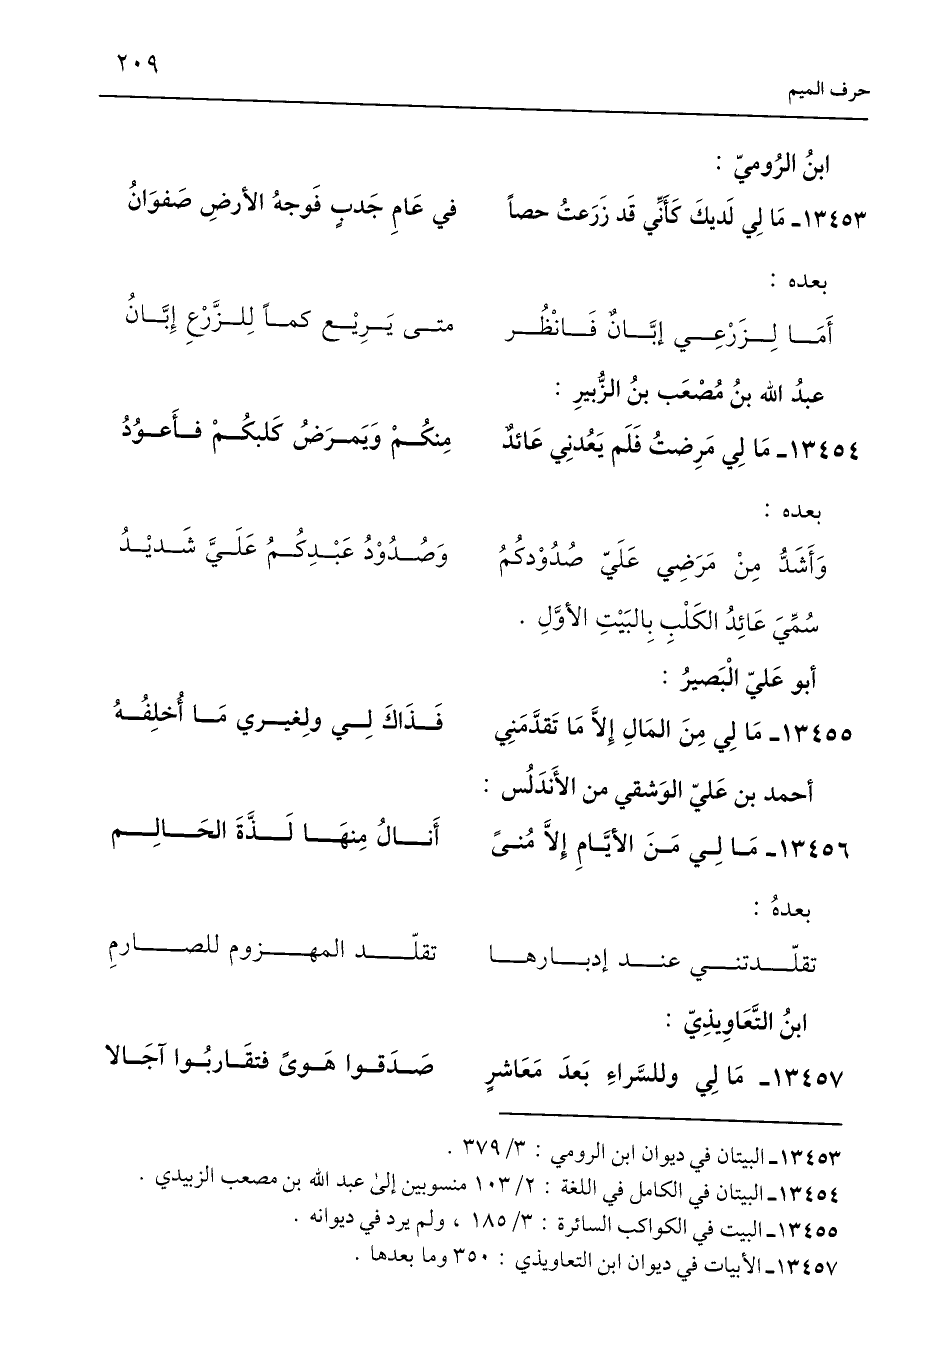 ٢٠٩
حرف الميم
ابنُ الرُوميّ :
١٣٤٥٣ـ مَا لِي لَديكَ كَأَنِّي قَد زَرَعتُ حصاً في عَامِ جَدبٍ فَوجهُ الأرضِ صَفوَانُ
بعده :
أَمَا لِزَرْعِي إبَّانٌ فَانْظُر متى يَرِيْع كماً لِلزَّرْعِ إبَّانُ
عبدُ الله بنُ مُصْعَب بنُ الزُّبيرِ :
١٣٤٥٤ـ مَا لِي مَرِضتُ فَلَم يَعُدني عَائدٌ مِنكُمْ وَيَمرَضُ كَلبكُمْ فأَعوُدُ
بعده :
وَأَشَدُّ مِنْ مَرَضِي عَلَيّ صُدُوْدكُمُ وَصُدُوْدُ عَبْدِكُمُ عَلَيَّ شَديْدُ
سُمِّيَ عَائِدُ الكَلْبِ بِالبَيْتِ الأوَّلِ .
أبو عَليّ الْبَصيرُ :
١٣٤٥٥ـ مَا لِي مِنَ المَالِ إلاَّ مَا تَقدَّمَنِي فَذَاكَ لِي ولِغيري مَا أُخلِفُهُ
أحمد بن عَليّ الوَشقي من الأَندَلُس :
١٣٤٥٦ـ مَا لِي مَنَ الأيَّامِ إلاَّ مُنىً أَنالُ مِنهَا لَذَّةَ الحَالِم
بعدهُ :
تقلّدتني عند إدبارها تقلّد المهزوم للصارمِ
ابنُ التَّعَاوِيذِيّ :
١٣٤٥٧ـ مَا لِي وللسَّراءِ بَعدَ مَعَاشرٍ صَدَقوا هَوىً فتقَاربُوا آجَالا
١٣٤٥٣ـ البيتان في ديوان ابن الرومي : ٣/ ٣٧٩ .
١٣٤٥٤ـ البيتان في الكامل في اللغة : ٢/ ١٠٣ منسوبين إلىٰ عبد الله بن مصعب الزبيدي .
١٣٤٥٥ـ البيت في الكواكب السائرة : ٣/ ١٨٥ ، ولم يرد في ديوانه .
١٣٤٥٧ـ الأبيات في ديوان ابن التعاويذي : ٣٥٠ وما بعدها .